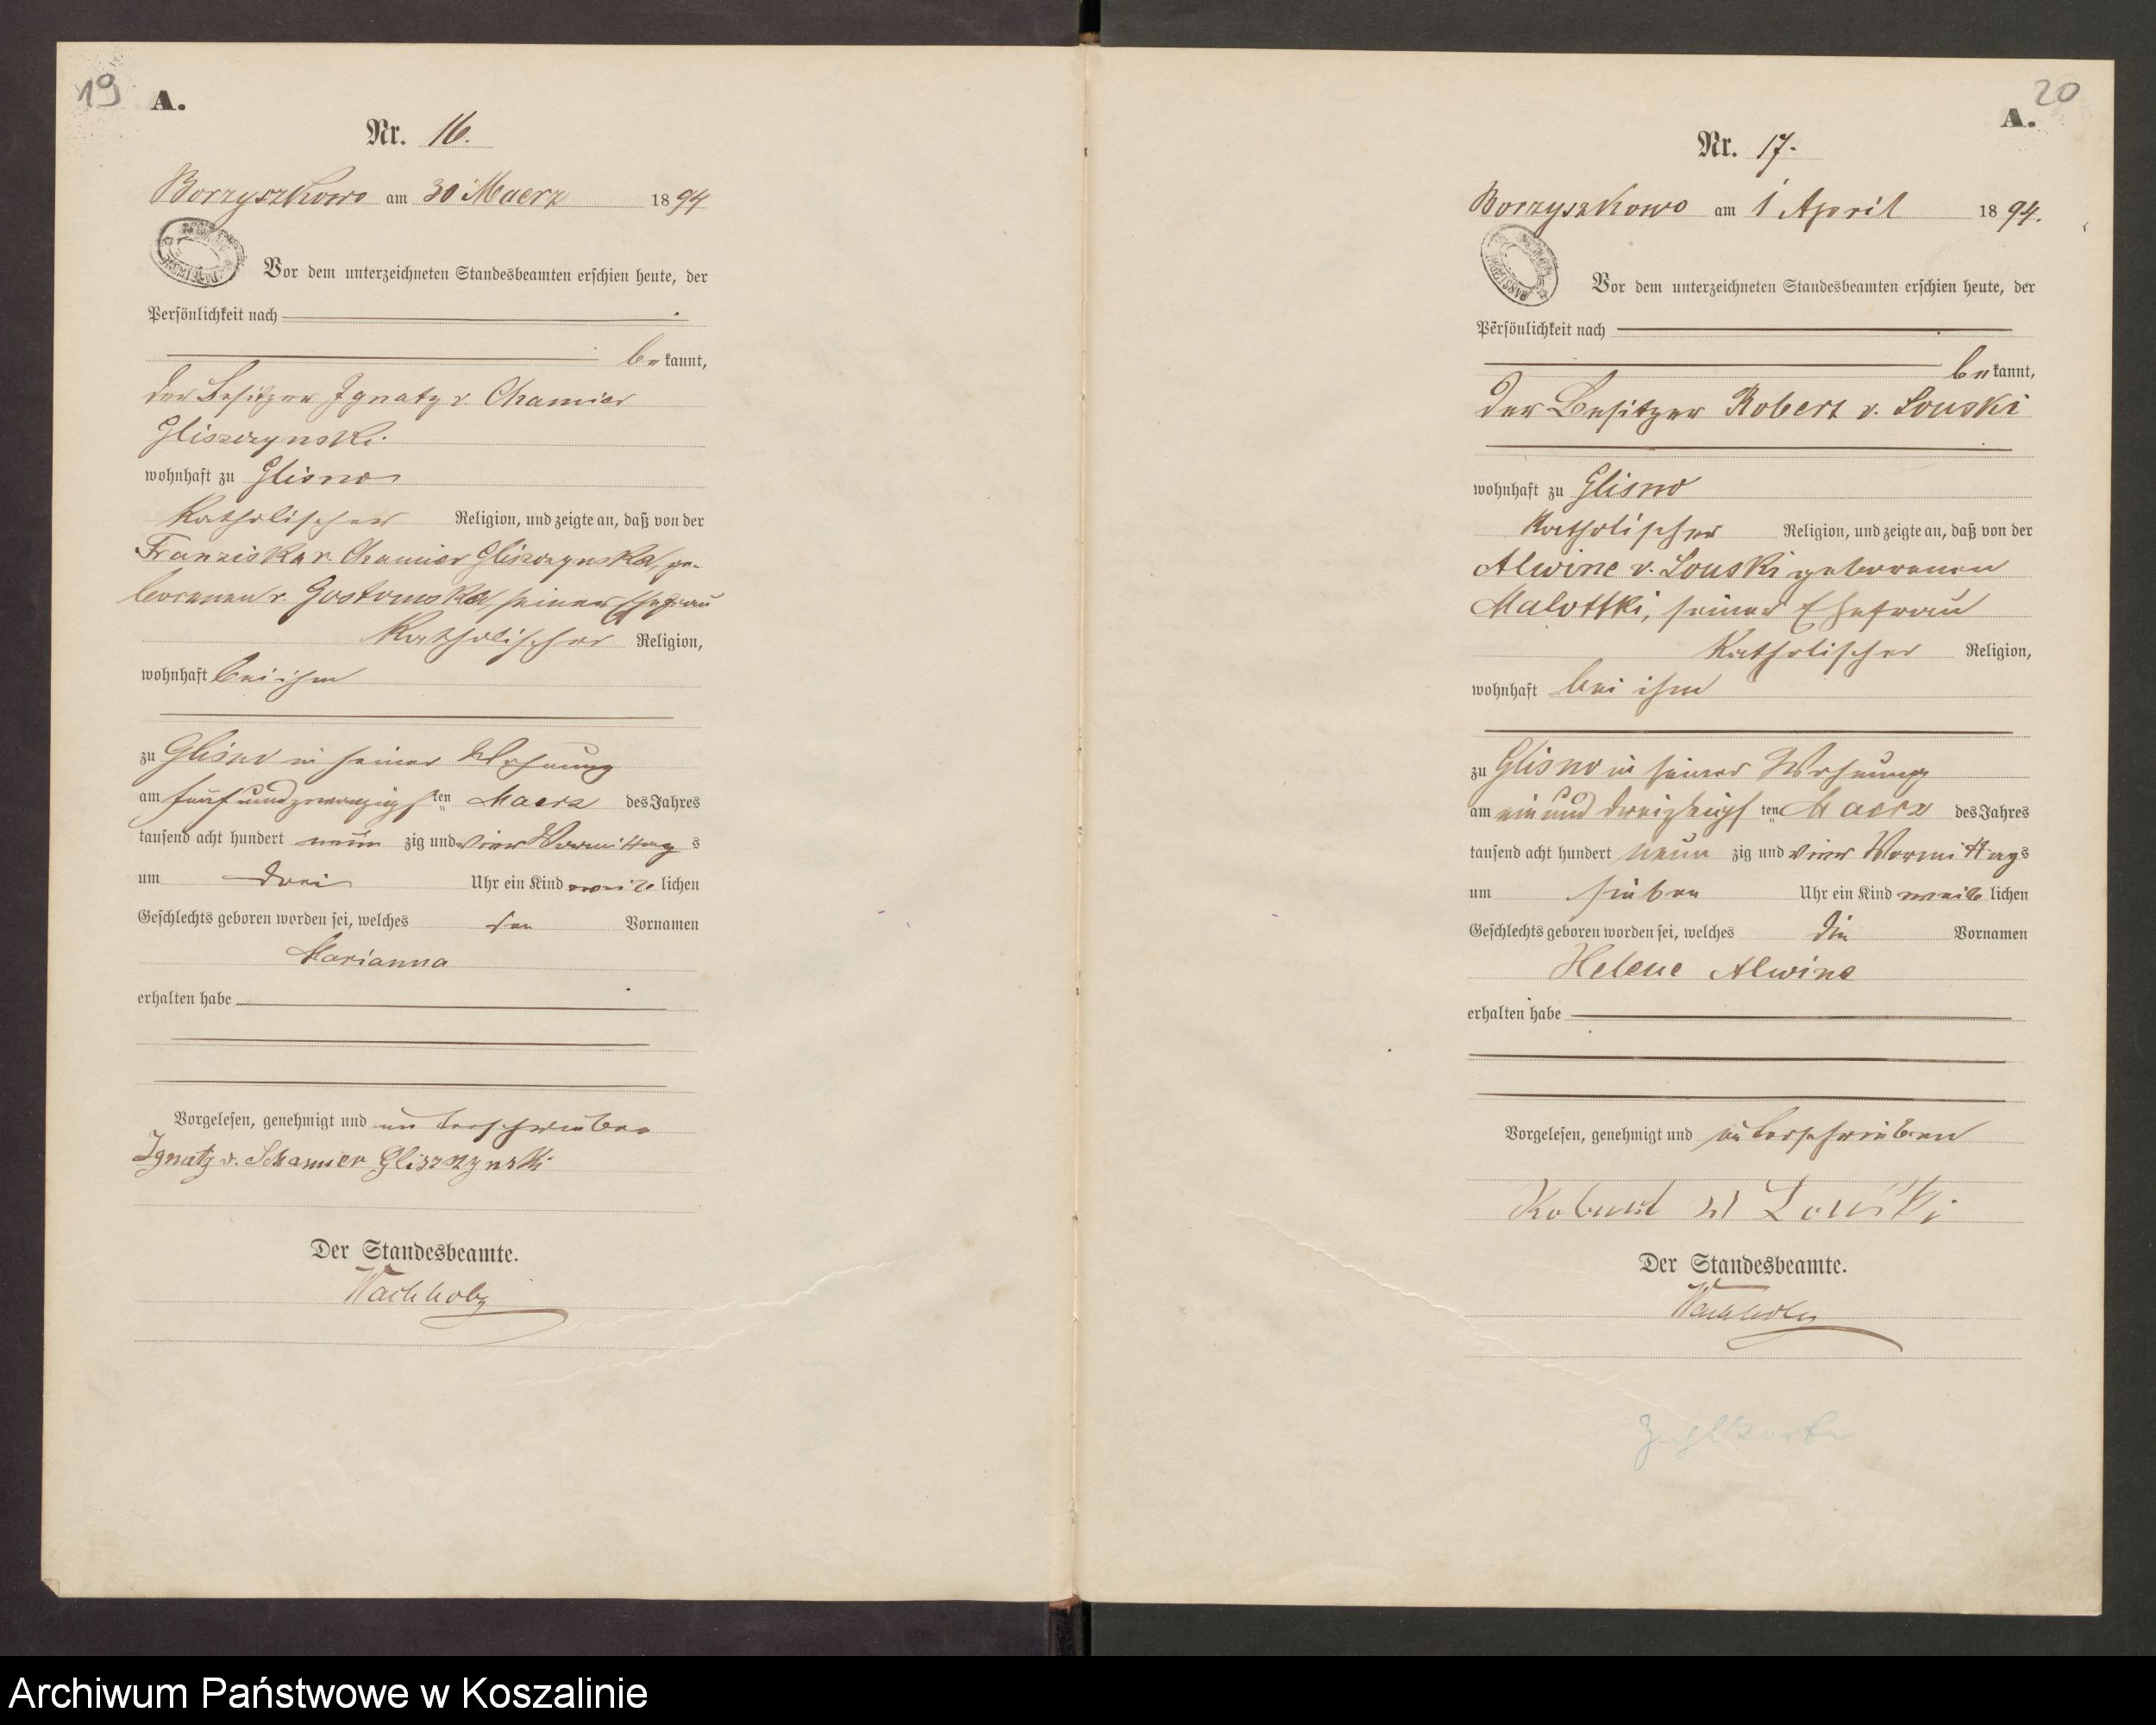 19
A.
Nr. 16.
Borzyszkowo am 30 Maerz 1894
Vor dem unterzeichneten Standesbeamten erschien heute, der
Persönlichkeit nach
bekannt,
der Besitzer Ignatz v. Chamier
Gliszczynski.
wohnhaft zu Glisno
katholischer Religion, und zeigte an, daß von der
Franziska v. Chamier Gliszczynska, ge-
borenen v. Gostomska, seiner Ehefrau
katholischer Religion,
wohnhaft bei ihm
zu Glisno in seiner Wohnung
am fünfundzwanzigsten Maerz des Jahres
tausend acht hundert neunzig und vier Vormittags
um drei Uhr ein Kind weiblichen
Geschlechts geboren worden sei, welches den Vornamen
Marianna
erhalten habe
Vorgelesen, genehmigt und unterschrieben
Ignatz v. Schamier Gliszczynski
Der Standesbeamte.
Wachholz
20
A.
Nr. 17.
Borzyszkowo am 1 April 1894.
Vor dem unterzeichneten Standesbeamten erschien heute, der
Persönlichkeit nach
bekannt,
der Besitzer Robert v. Louski
wohnhaft zu Glisno
katholischer Religion, und zeigte an, daß von der
Alwine v. Louski geborenen
Malottki, seiner Ehefrau
katholischer Religion,
wohnhaft bei ihm
zu Glisno in seiner Wohnung
am ein und dreizhigsten Maerz des Jahres
tausend acht hundert neunzig und vier Vormittags
um sieben Uhr ein Kind weiblichen
Geschlechts geboren worden sei, welches die Vornamen
Helene Alwine
erhalten habe
Vorgelesen, genehmigt und unterschrieben
Robert v Louski
Der Standesbeamte.
Wachholz
Zählkarte
Archiwum Państwowe w Koszalinie